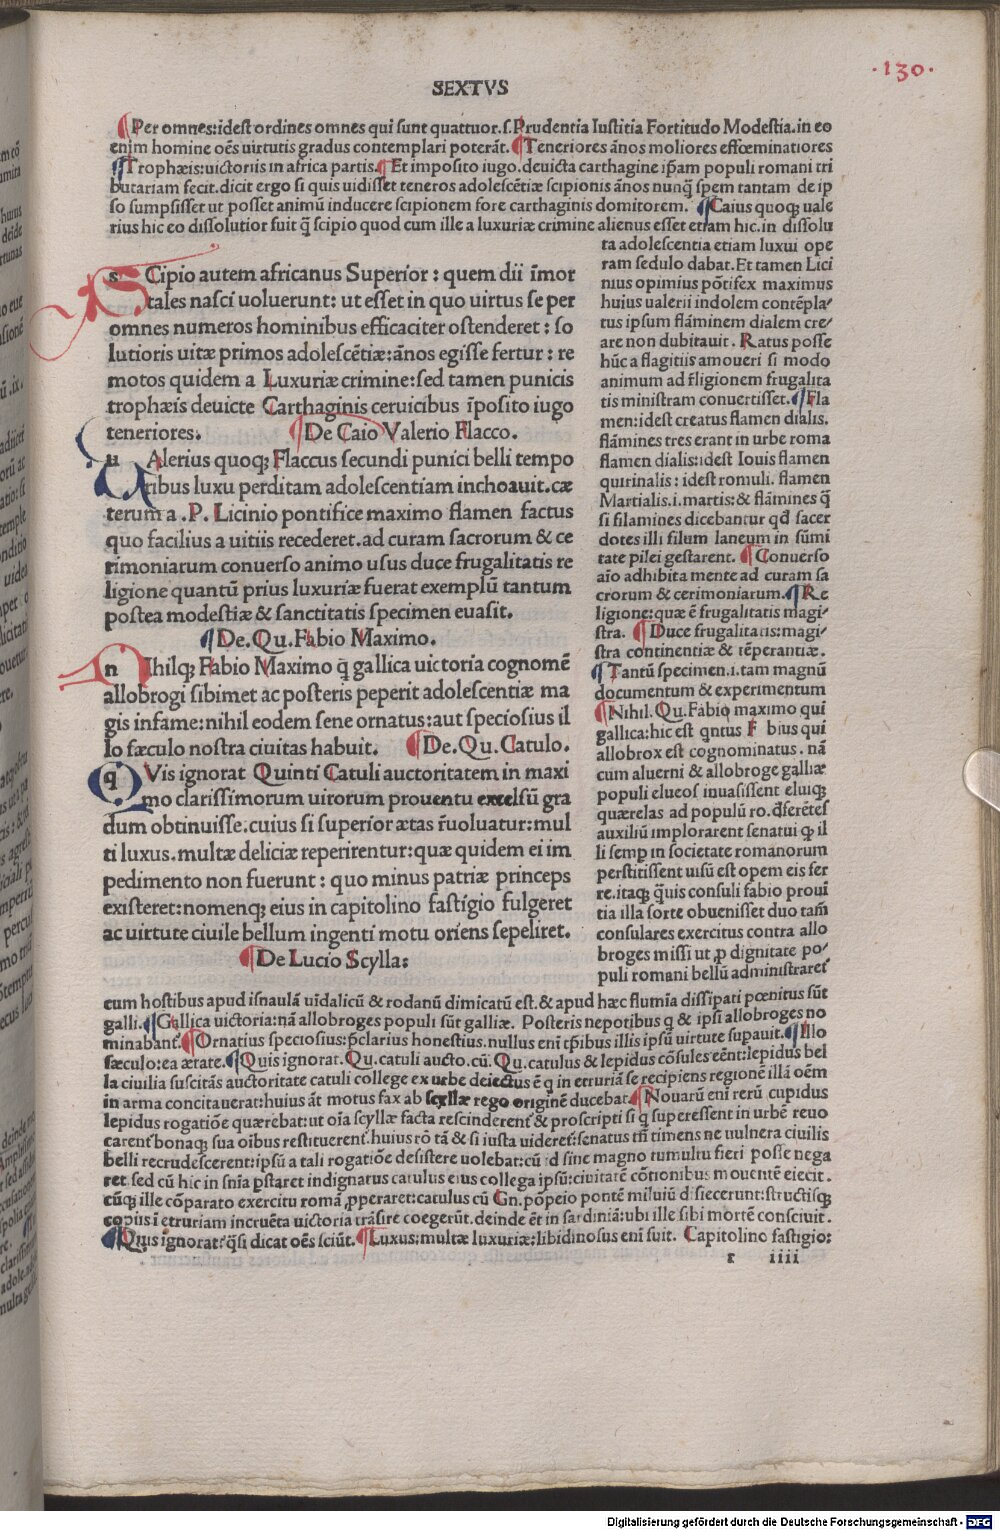 ·130·
SEXTVS
¶Per omnes:idest ordines omnes qui sunt quattuor.s.Prudentia Iustitia Fortitudo Modestia.in eo
enim homine oēs uirtutis gradus contemplari poterāt. ¶Teneriores ānos moliores effœminatiores
¶Trophæis:uictoriis in africa partis.¶Et imposito iugo.deuicta carthagine ipsam populi romani tri
butariam fecit.dicit ergo si quis uidisset teneros adolescētiæ scipionis ānos nunq̄ spem tantam de ip
so sumpsisset ut posset animū inducere scipionem fore carthaginis domitorem. ¶Caius quoq; uale
rius hic eo dissolutior fuit q̄ scipio quod cum ille a luxuriæ crimine alienus esset etiam hic.in dissolu
ta adolescentia etiam luxui ope
ram sedulo dabat.Et tamen Lici
nius opimius pōtifex maximus
huius ualerii indolem contēpla/
tus ipsum flāminem dialem cre/
are non dubitauit. Ratus posse
hūc a flagitiis amoueri si modo
animum ad r̄ligionem frugalita
tis ministram conuertisset.¶Fla
men:idest creatus flamen dialis.
flāmines tres erant in urbe roma
flamen dialis:idest Iouis flamen
quirinalis : idest romuli. flamen
Martialis.i.martis:& flāmines q̄
si filamines dicebantur qđ sacer
dotes illi filum laneum in sūmi
tate pilei gestarent. ¶Conuerso
aio adhibita mente ad curam sa
crorum & cerimoniarum.¶Re
ligione:quæ ē frugalitatis magi/
stra. ¶Duce frugalitatis:magi/
stra continentiæ & tēperantiæ.
¶Tantū specimen.i.tam magnū
documentum & experimentum
¶Nihil. Qu.Fabio maximo qui
gallica:hic est qntus F bius qui
allobrox est cognominatus. nā
cum aluerni & allobroge galliæ
populi elueos inuasissent eluiq;
quærelas ad populū ro.dēferētes
auxiliū implorarent senatui ꝙ il
li semp in societate romanorum
perstitissent uisū est opem eis fer
re.itaq; q̄uis consuli fabio proui
tia illa sorte obuenisset duo tam̄
consulares exercitus contra allo
broges missi ut p dignitate po/
puli romani bellū administraret̄
sCipio autem africanus Superior : quem dii īmor
tales nasci uoluerunt: ut esset in quo uirtus se per
omnes numeros hominibus efficaciter ostenderet : so
lutioris uitæ primos adolescētiæ:ānos egisse fertur : re
motos quidem a Luxuriæ crimine:sed tamen punicis
trophæis deuicte Carthaginis ceruicibus īposito iugo
teneriores. ¶De Caio Valerio Flacco.
uAlerius quoq; Flaccus secundi punici belli tempo
ribus luxu perditam adolescentiam inchoauit.cæ
terum a .P. Licinio pontifice maximo flamen factus
quo facilius a uitiis recederet.ad curam sacrorum & ce
rimoniarum conuerso animo usus duce frugalitatis re
ligione quantū prius luxuriæ fuerat exemplū tantum
postea modestiæ & sanctitatis specimen euasit.
¶De.Qu.Fabio Maximo.
nIhilq; Fabio Maximo q̄ gallica uictoria cognomē
allobrogi sibimet ac posteris peperit adolescentiæ ma
gis infame:nihil eodem sene ornatus:aut speciosius il
lo fæculo nostra ciuitas habuit. ¶De.Qu.Catulo.
qVis ignorat Quinti Catuli auctoritatem in maxi
mo clarissimorum uirorum prouentu excelsū gra
dum obtinuisse.cuius si superior ætas r̄uoluatur:mul
ti luxus.multæ deliciæ reperirentur:quæ quidem ei im
pedimento non fuerunt : quo minus patriæ princeps
existeret:nomenq; eius in capitolino fastigio fulgeret
ac uirtute ciuile bellum ingenti motu oriens sepeliret.
¶De Lucio Scylla:
cum hostibus apud iſnaulā uidalicū & rodanū dimicatū est.& apud hæc flumīa dissipati pœnitus sūt
galli.¶Gallica uictoria:nā allobroges populi sūt galliæ. Posteris nepotibus q & ipsi allobroges no
minabant̄.¶Ornatius speciosius:p̄clarius honestius.nullus eni tp̄ibus illis ipsū uirtute supauit.¶Illo
fæculo:ea ætate.¶Quis ignorat.Qu.catuli aucto.cū.Qu.catulus & lepidus cōsules eēnt:lepidus bel
la ciuilia suscitās auctoritate catuli college ex urbe deiectus ē q in etruriā se recipiens regionē illā oēm
in arma concitauerat:huius āt motus fax ab scyllæ rego originē ducebat.¶Nouarū eni rerū cupidus
lepidus rogatiōē quærebat:ut oīa scyllæ facta rescinderent̄ & proscripti si q superessent in urbē reuo
carent̄ bonaq; sua oibus restituerent̄.huius rō tā & si iusta uideret̄:senatus tn̄ timens ne uulnera ciuilis
belli recrudescerent:ipsū a tali rogatiōe desistere uolebat:cū id sine magno tumultu fieri posse nega
ret.sed cū hic in snīa pstaret indignatus catulus eius collega ipsū:ciuitatē cōtionibus mouentē eiecit.
cūq; ille cōparato exercitu romā pperaret:catulus cū Gn.pōpeio pontē miluiū disiecerunt:structisq;
copiis ī etruriam incruēta uictoria trāsire coegerūt.deinde ēt in sardiniā:ubi ille sibi mortē consciuit.
¶Quis ignorat?q̄si dicat oēs sciūt.¶Luxus:multæ luxuriæ:libidinosus eni fuit. Capitolino fastigio:
r iiii
Digitalisierung gefördert durch die Deutsche Forschungsgemeinschaft - DFG